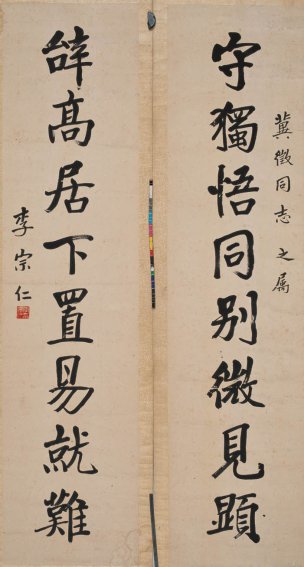 冀徵同志之属
守獨悟同别微見顯
辭高居下置易就難
李宗仁